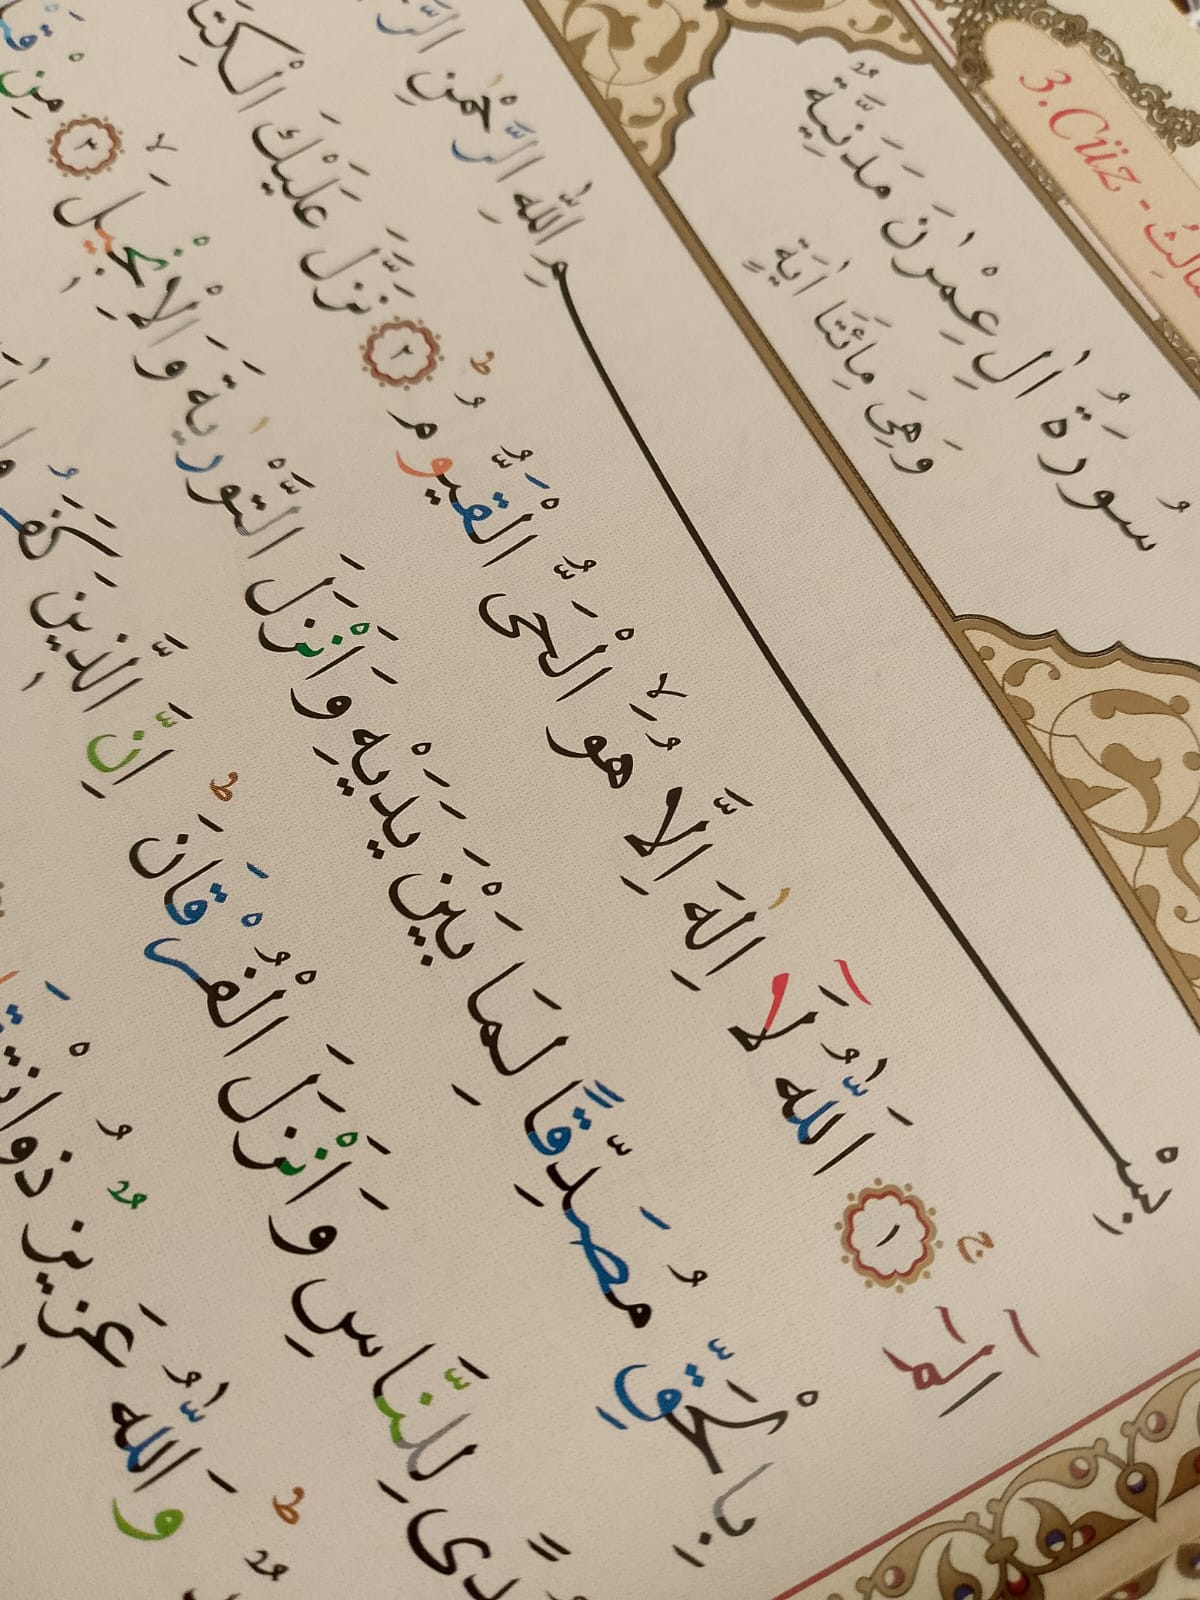 3. Cüz - الِثُ
سُورَةُ اٰلِ عِمْرٰنَ مَدَنِيَّةٌ
وَهِيَ مِائَتَا اٰيَةٍ
بِسْمِ اللّٰهِ الرَّحْمٰنِ الرَّ
الٓمٓ ۚ ﴿١﴾ اَللّٰهُ لَٓا اِلٰهَ اِلَّا هُوَۙ الْحَىُّ الْقَيُّومُ ۜؕ ﴿٢﴾ نَزَّلَ عَلَيْكَ الْكِتَا
بِالْحَقِّ مُصَدِّقًا لِمَا بَيْنَ يَدَيْهِ وَاَنْزَلَ التَّوْرٰيةَ وَالْاِنْجٖيلَۙ ﴿٣﴾ مِنْ قَ
دًى لِلنَّاسِ وَاَنْزَلَ الْفُرْقَانَؕ اِنَّ الَّذٖينَ كَفَرُوا
وَاللّٰهُ عَزٖيزٌ ذُوانْتِقَا